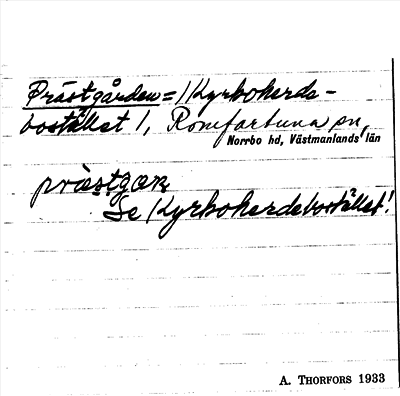 Prästgården = / Kyrkoherde-
bostället /, Romfartuna sn,
Norrbo hd, Västmanlands län
præstgaɳ
Se / Kyrkoherdebostället!
A. THORFORS 1933